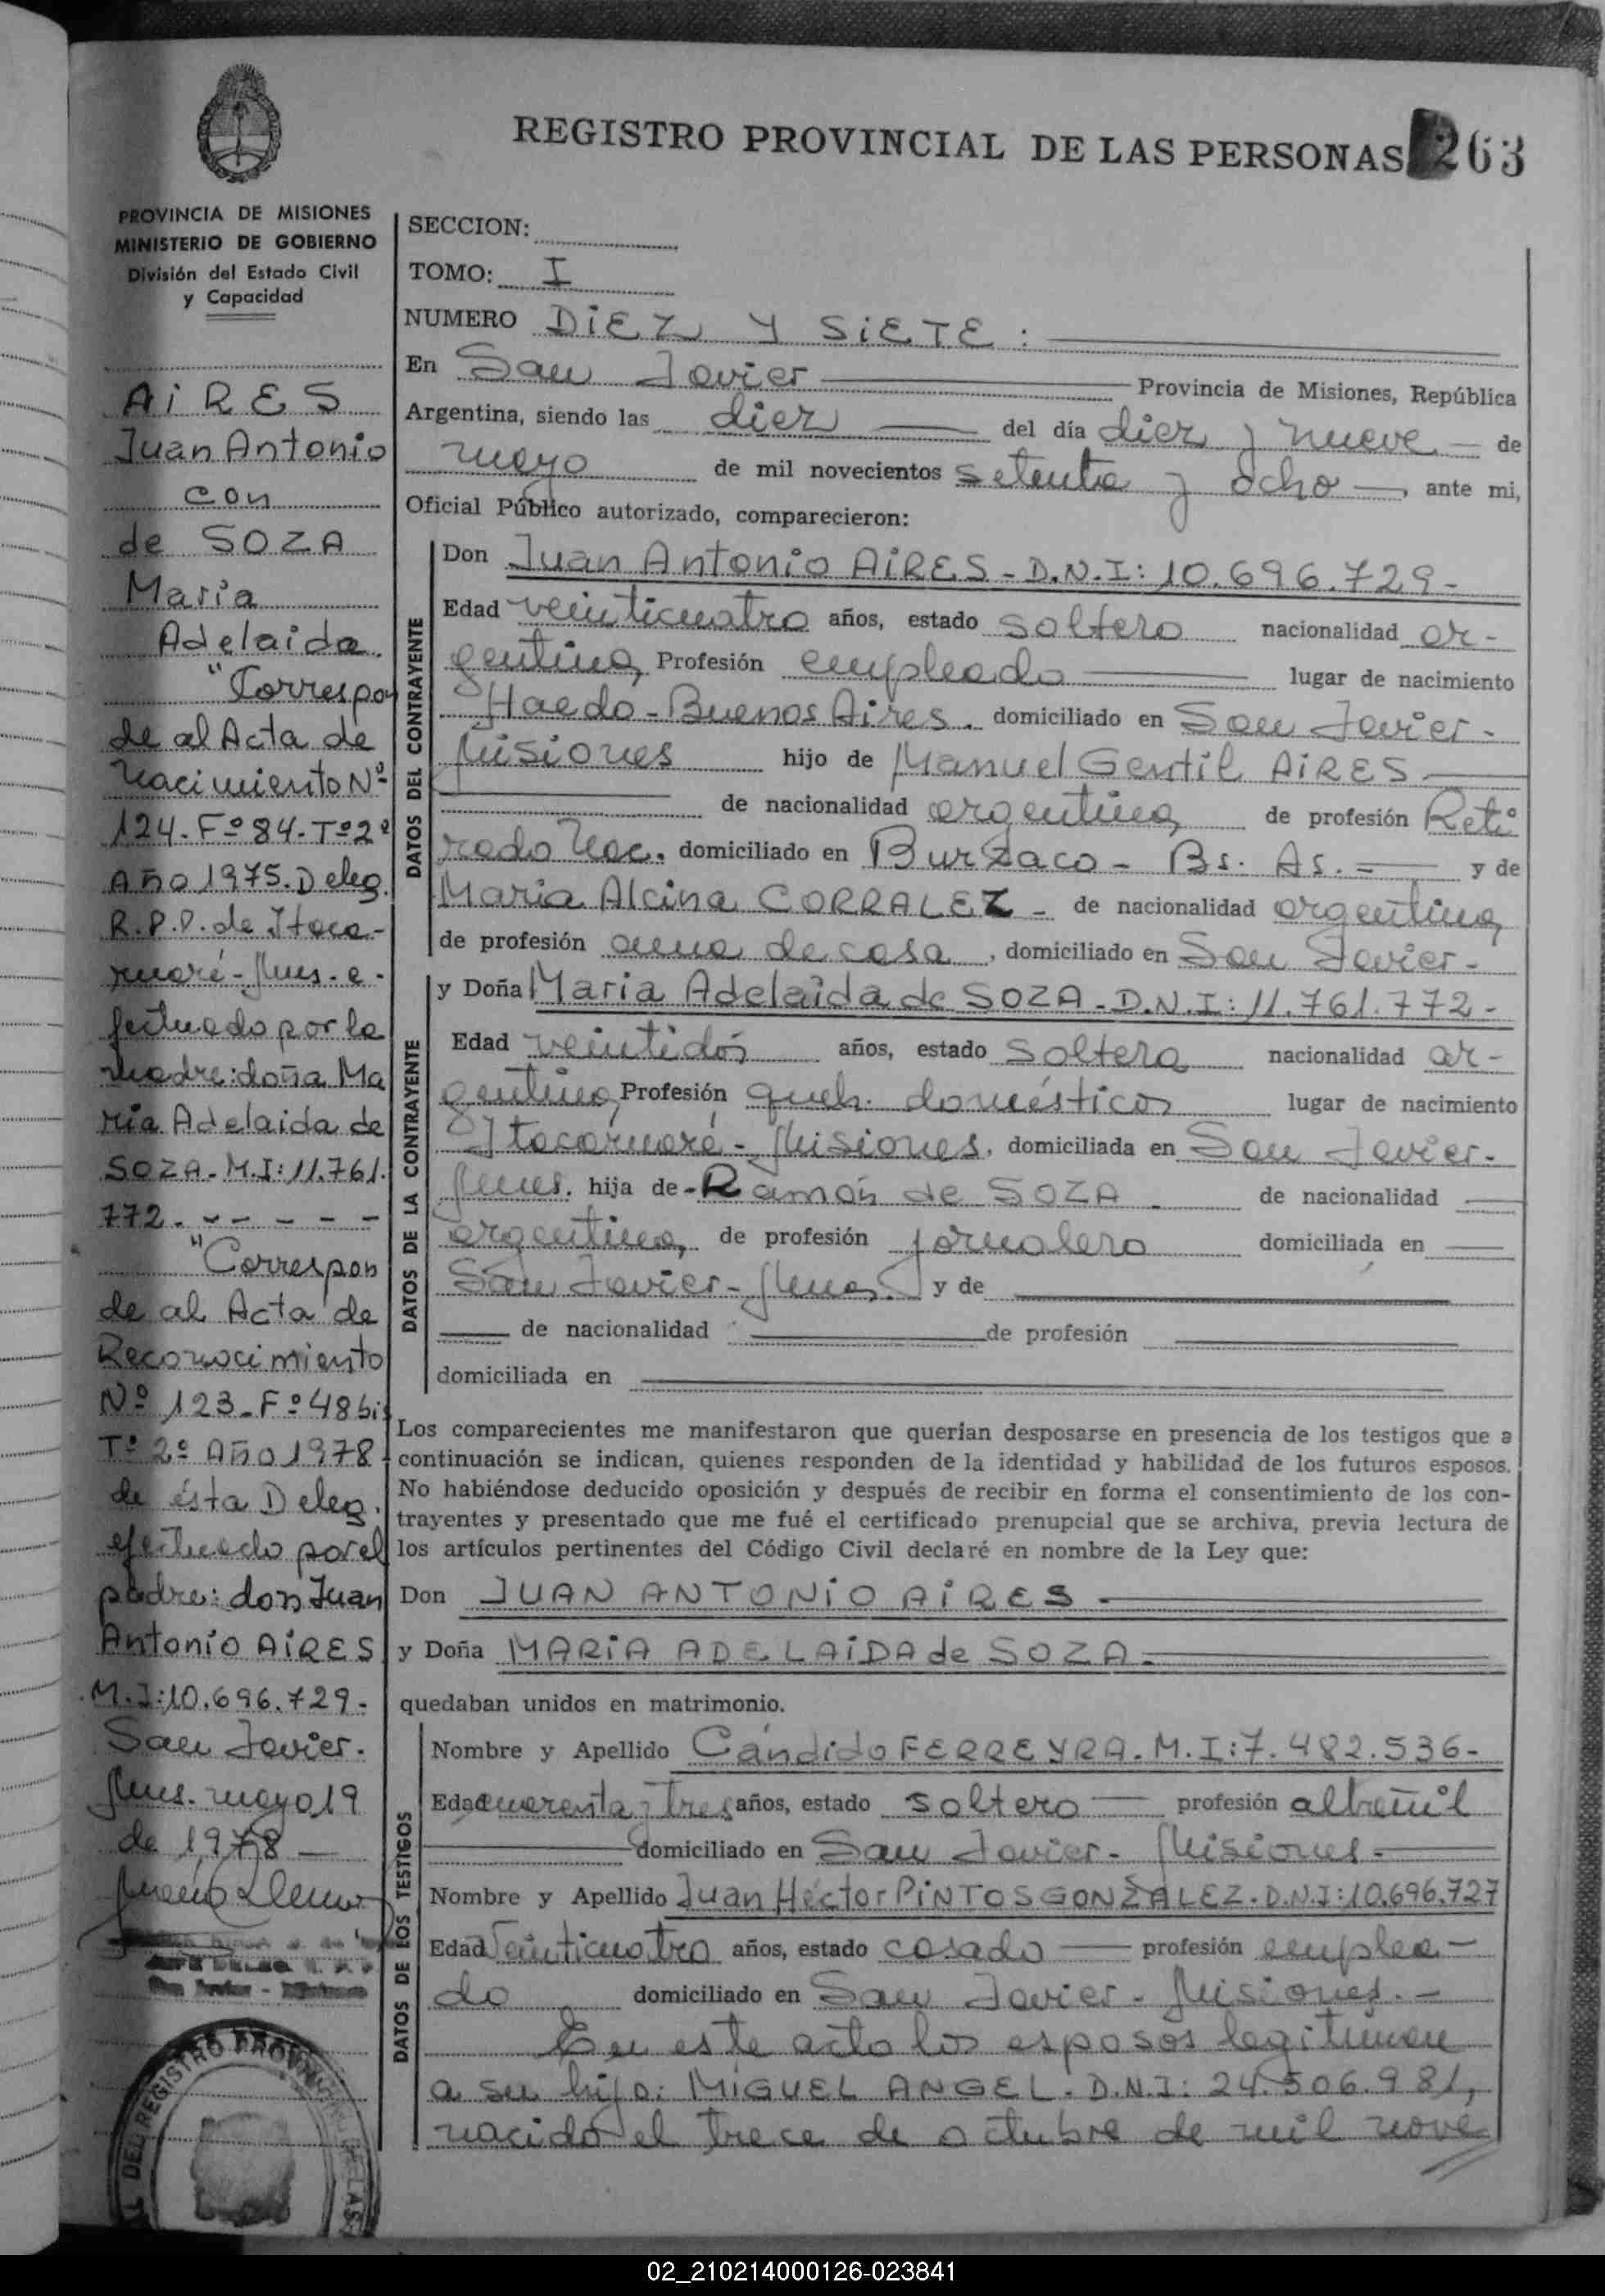 REGISTRO PROVINCIAL DE LAS PERSONAS 263
PROVINCIA DE MISIONES
MINISTERIO DE GOBIERNO
División del Estado Civil
y Capacidad
AiRES
Juan Antonio
con
de SOZA
Maria
Adelaida.
"Correspon
de al Acta de
nacimiento Nº
124. Fº 84. Tº 2º
Año 1975. Deleg.
R.P.P. de Itaca-
ruaré - Mnes. e-
fectuado por la
madre: doña Ma
ria Adelaida de
SOZA. M.I: 11.761.
772. - - - - -
"Correspon
de al Acta de
Reconocimiento
Nº 123 - Fº 48 bis
Tº 2º Año 1978
de ésta Deleg.
efectuado por el
padre: don Juan
Antonio AiRES
M.I: 10.696.729.
San Javier.
Mnes. mayo 19
de 1978
SECCION:
TOMO: I
NUMERO DiEZ Y SiETE :
En San Javier Provincia de Misiones, República
Argentina, siendo las diez del día diez y nueve de
mayo de mil novecientos setenta y ocho, ante mi,
Oficial Público autorizado, comparecieron:
DATOS DEL CONTRAYENTE
Don Juan Antonio AiRES - D.N.I: 10.696.729-
Edad veinticuatro años, estado soltero nacionalidad ar-
gentina, Profesión empleado lugar de nacimiento
Haedo - Buenos Aires. domiciliado en San Javier-
Misiones hijo de Manuel Gentil AiRES
de nacionalidad argentina de profesión Reti
rado Nac. domiciliado en Burzaco - Bs. As. - y de
Maria Alcina CORRALEZ - de nacionalidad argentina,
de profesión ama de casa, domiciliado en San Javier-
DATOS DE LA CONTRAYENTE
y Doña Maria Adelaida de SOZA - D.N.I: 11.761.772-
Edad veintidós años, estado soltera nacionalidad ar-
gentina, Profesión queh. domésticos lugar de nacimiento
Itacaruaré - Misiones, domiciliada en San Javier-
Mnes. hija de - Ramón de SOZA de nacionalidad
argentina, de profesión jornalero domiciliada en
San Javier - Mnes. y de
de nacionalidad de profesión
domiciliada en
Los comparecientes me manifestaron que querían desposarse en presencia de los testigos que a
continuación se indican, quienes responden de la identidad y habilidad de los futuros esposos.
No habiéndose deducido oposición y después de recibir en forma el consentimiento de los con-
trayentes y presentado que me fué el certificado prenupcial que se archiva, previa lectura de
los artículos pertinentes del Código Civil declaré en nombre de la Ley que:
Don JUAN ANTONiO AiRES -
y Doña MARiA ADELAiDA de SOZA.
quedaban unidos en matrimonio.
DATOS DE LOS TESTIGOS
Nombre y Apellido Cándido FERREYRA. M.I: 7.482.536-
Edad cuarenta y tres años, estado soltero profesión albañil
domiciliado en San Javier - Misiones -
Nombre y Apellido Juan Héctor PiNTOS GONZÁLEZ. D.N.I: 10.696.727
Edad Veinticuatro años, estado casado profesión emplea-
do domiciliado en San Javier - Misiones. -
En este acto los esposos legitiman
a su hijo: MiGUEL ANGEL. D.N.I: 24.506.981,
nacido el trece de octubre de mil nove
DEL REGISTRO PROVINCIAL DE LAS
02_210214000126-023841